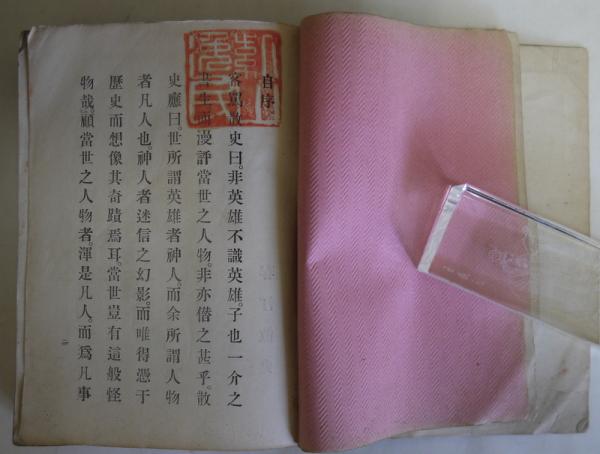 自序
客罵散史曰。非英雄不識英雄。子也一介之
書生而漫評當世之人物。非亦僭之甚乎。散
史應曰。世所謂英雄者神人。而余所謂人物
者凡人也。神人者迷信之幻影。而唯得憑于
歷史而想像其奇蹟焉耳。當世豈有這般怪
物哉。顧當世之人物者。渾是凡人。而爲凡事